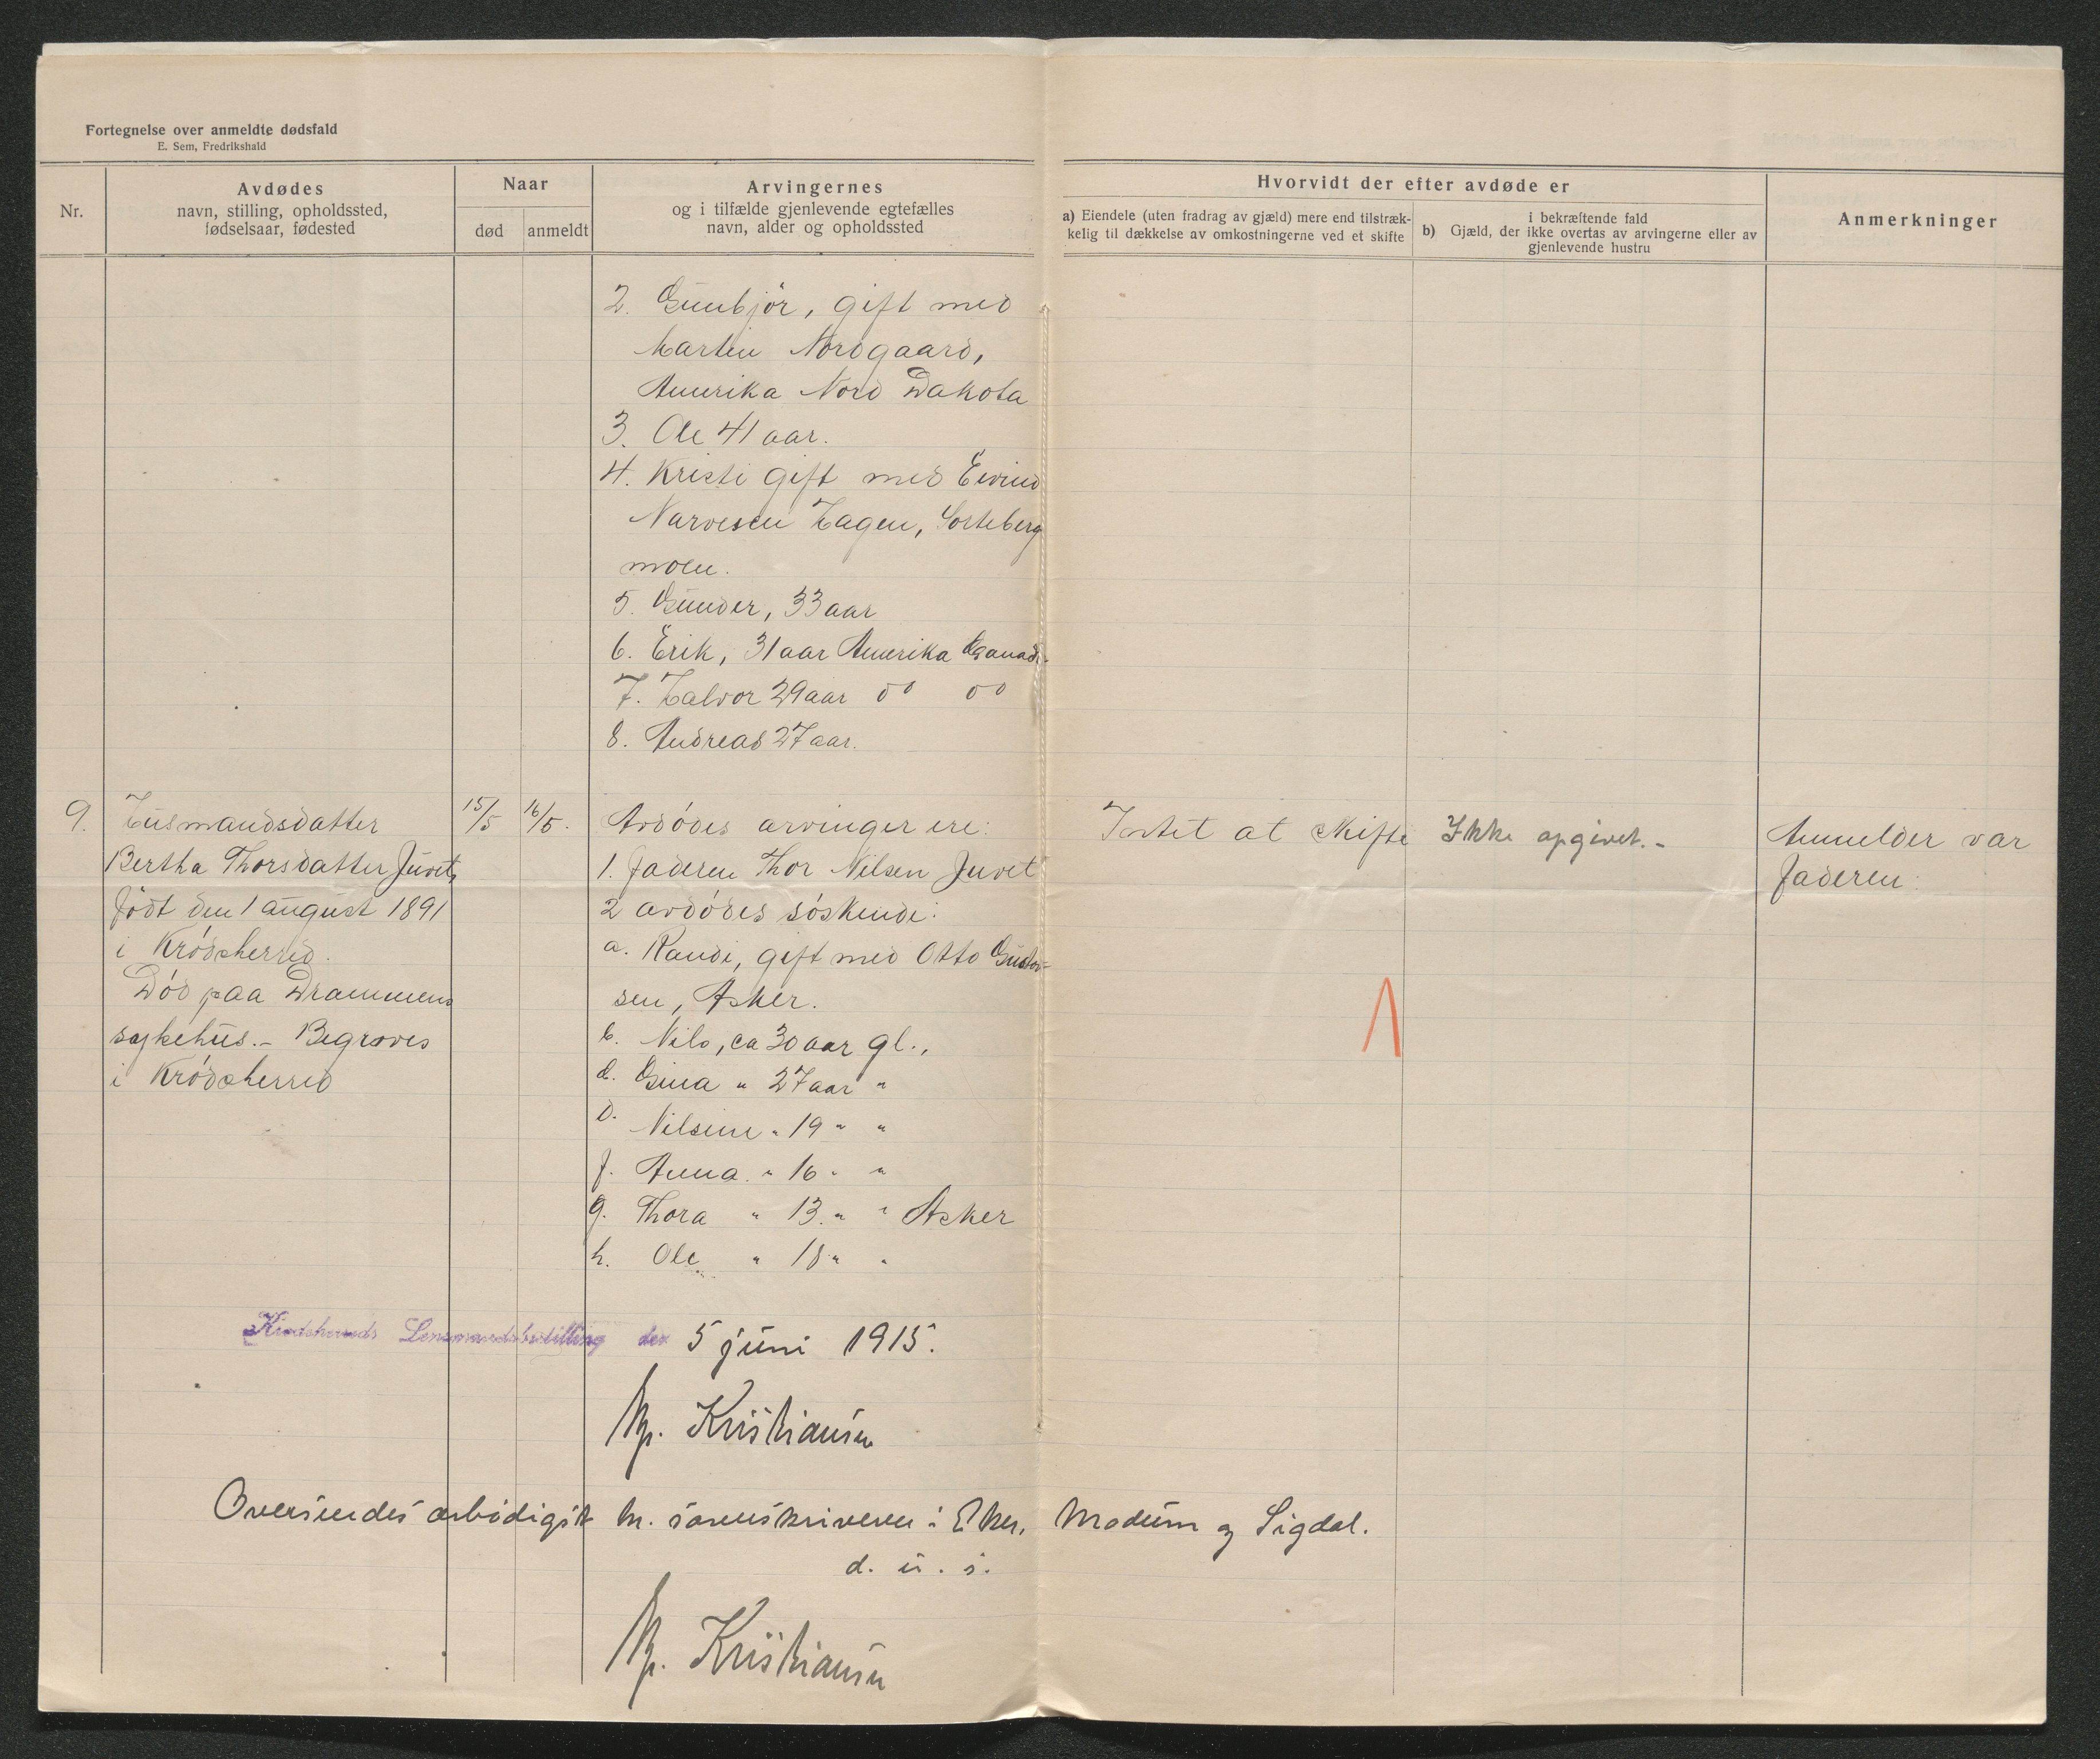 Fortegnelse over anmeldte dødsfald
E. Sem, Fredrikshald
Nr.
Avdødes
navn, stilling, opholdssted,
fødselsaar, fødested
Naar
død
anmeldt
Arvingernes
og i tilfælde gjenlevende egtefælles
navn, alder og opholdssted
Hvorvidt der efter avdøde er
a) Eiendele (uten fradrag av gjæld) mere end tilstræk-
kelig til dækkelse av omkostningerne ved et skifte
i bekræftende fald
b) Gjæld, der ikke overtas av arvingerne eller av
gjenlevende hustru
Anmerkninger
2. Gunbjör, gift med
Martin Nordgaard,
Amerika Nord Dakota
3. Ole 41 aar.
4. Kristi gift med Eivind
Narvesen Hagen, Sorteberg
moen.
5. Gunder, 33 aar
6. Erik, 31 aar Amerika Canada
7. Halvor 29 aar do do
8. Andreas 27 aar.
9.
Husmandsdatter
Bertha Thorsdatter Juvet,
född den 1 august 1891
i Krödsherred.
Död paa Drammens
sykehus. - Begraves
i Krödsherred
15/5
16/5.
Avdödes arvinger ere:
1. Faderen Thor Nilsen Juvet
2 avdödes söskende:
a. Randi, gift med Otto Gustav-
sen, Asker.
b. Nils, ca 30 aar gl.,
c. Gina " 27 aar "
d. Nilsine " 19 " "
f. Anna. " 16 " "
g. Thora " 13. " " Asker
h. Ole " 18 " "
Intet at skifte
Ikke opgivet. -
Anmelder var
Faderen.
Krødsherreds Lensmandsbestilling den 5 juni 1915.
Kristiansen
Oversendes ærbödigst hr. sorenskriveren i Eker, Modum og Sigdal.
d. u. s.
Kristiansen